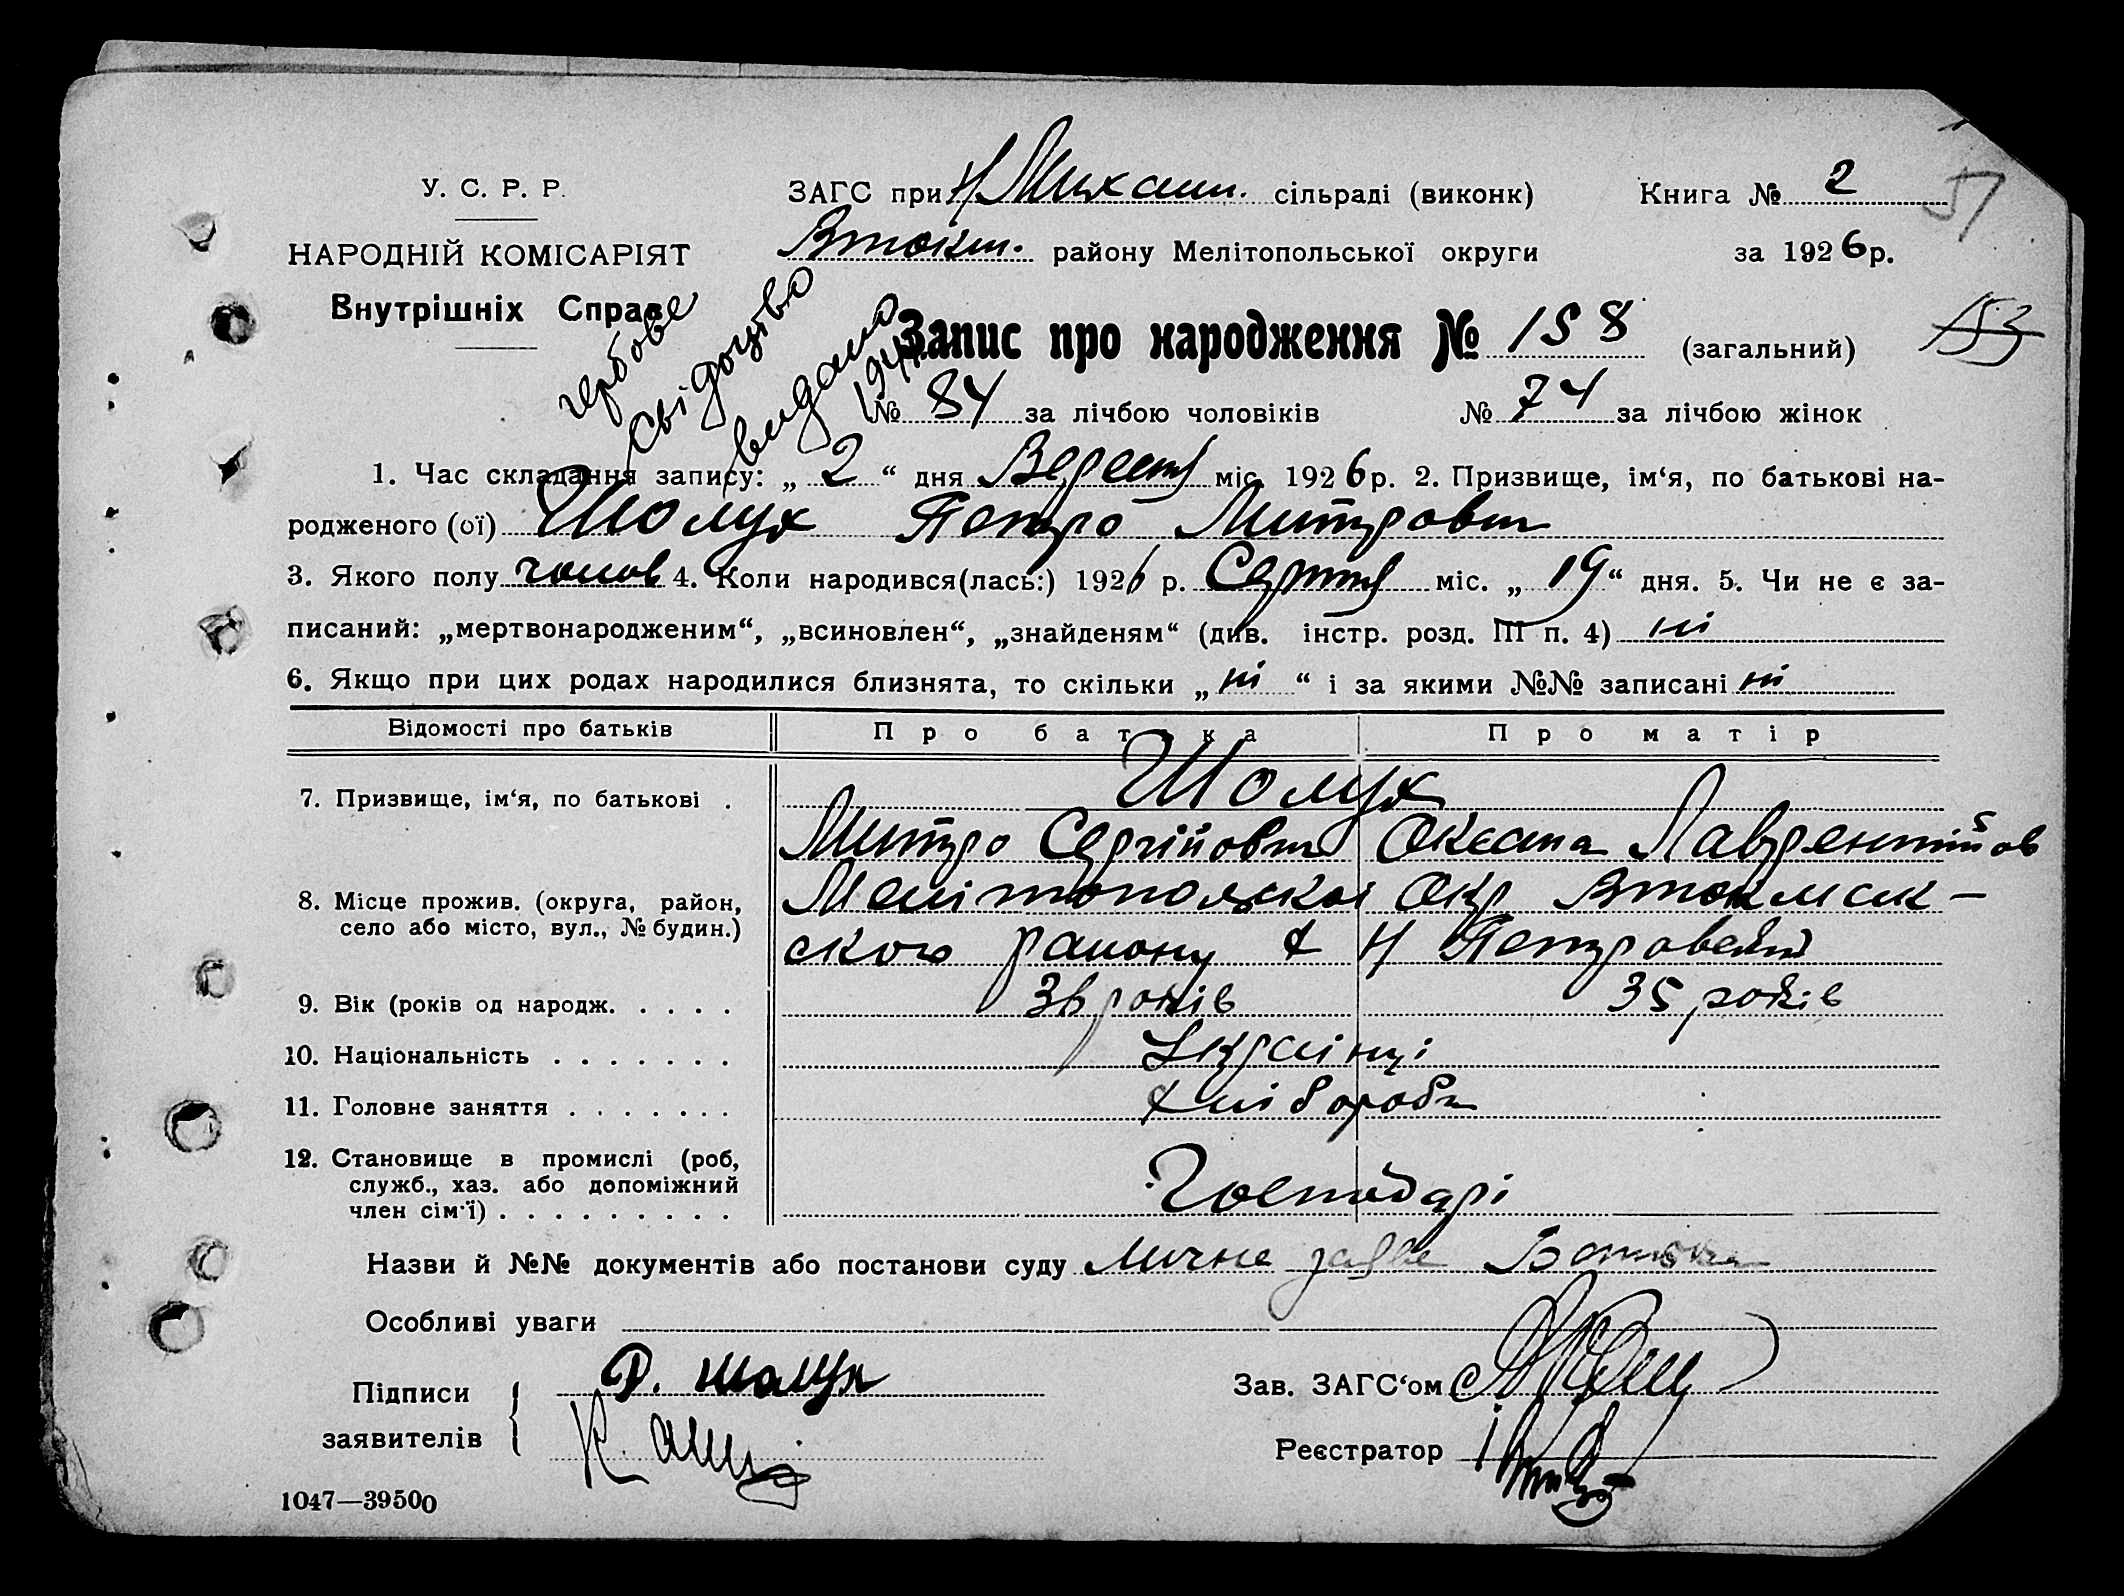 У. С. Р. Р.
НАРОДНІЙ КОМІСАРІЯТ
Внутрішніх Справ
ЗАГС при Н Михайл. сільраді (виконк)
Втокм. району Мелітопольської округи
Книга № 2
за 1926 р.
51
153
гербове
свідоцтво
видано
Запис про народження № 158 (загальний)
№ 84 за лічбою чоловіків № 74 за лічбою жінок
1. Час складання запису: „ 2 “ дня Вересня міс. 1926 р. 2. Призвище, ім‘я, по батькові на-
родженого (ої) Шолух Петро Митрович
3. Якого полу чолов 4. Коли народився(лась:) 1926 р. Серпня міс. „ 19 “ дня. 5. Чи не є за-
писаний: „мертвонародженим“, „всиновлен“, „знайденям“ (див. інстр. розд. III п. 4) ні
6. Якщо при цих родах народилися близнята, то скільки „ ні “ і за якими №№ записані ні
Відомості про батьків Про батька Про матір
7. Призвище, ім‘я, по батькові . Шолух
Митро Сергійович Оксана Лаврентійов
8. Місце прожив. (округа, район, село або місто, вул., № будин.) Мелітопольскої Окр Втокмак-
ского району х Н Петровский
9. Вік (років од народж. . . . . 36 років 35 років
10. Національність . . . . . . . Українці
11. Головне заняття . . . . . . . Хлібороби
12. Становище в промислі (роб,
служб., хаз. або допоміжний
член сім‘ї) . . . . . . . . . Господарі
Назви й №№ документів або постанови суду Лична заява Батька
Особливі уваги
Підписи
заявителів
Д. Шолух
Зав. ЗАГС‘ом
Реєстратор
1047—39500